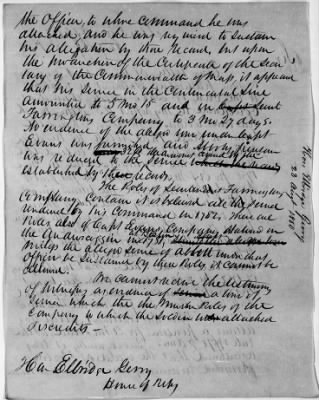 the Officer, to whose command he was
attached, and he was required to sustain
his allegation by those records, but upon
the production of the Certificate of the Secre
tary of the Commonwealth of Mass. it appeared
that his service in the Continental Line
amounted to 5 Mo 15 and in Lieut
Farringtons Company to 3 Mo 27 days.
No evidence of the alleged under Capt
Evans was furnished, and
was reduced to the service
established by these records.
The Rolls of Lieutenant Farringtons
Company, contain it is believed all the service
rendered by his Command in 1780. There are
Rolls also of Capt Evans Company, stationed in
the Androscoggin in 1781,
unless the alleged service of Abbott under that
Officer be sustained by these Rolls, it cannot be
allowed.
We cannot receive the testimony
of witnesses, as evidence of a time of
service which the Muster Rolls of the
Company to which the Soldier was attached
discredits —
Hon Elbridge Gerry
House of Reps
Hon. Elbridge Gerry
23 Aug 1850